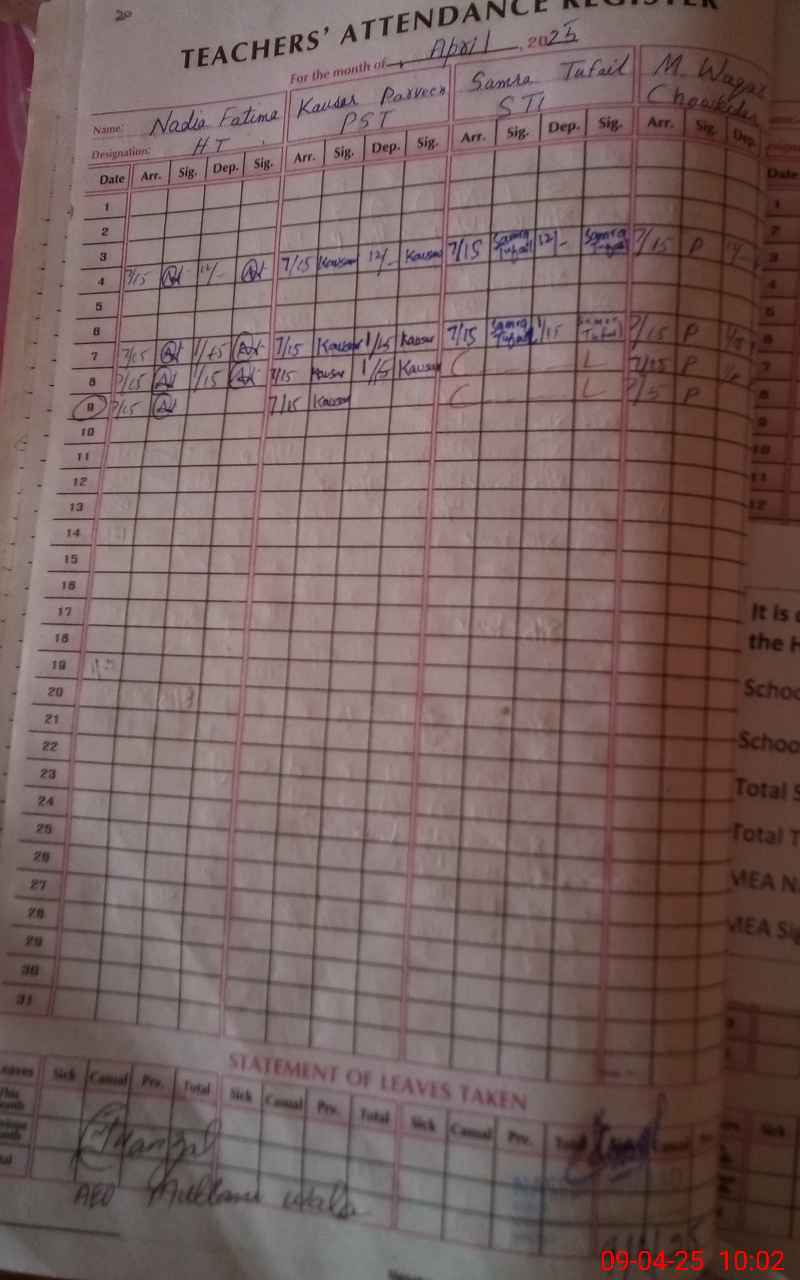 20
TEACHERS' ATTENDANCE REGISTER
For the month of April, 2025
Name: Nadia Fatima Kausar Parveen Samra Tufail M. Waqar
Designation: HT PST STI Chowkidar
Date Arr. Sig. Dep. Sig. Arr. Sig. Dep. Sig. Arr. Sig. Dep. Sig. Arr. Sig. Dep.
1
2
3
4 7/15 12/- 7/15 Kausar 12/- Kausar 7/15 Samra Tufail 12/- Samra Tufail 7/15 P 12/-
5
6
7 7/15 1/15 7/15 Kausar 1/15 Kausar 7/15 Samra Tufail 1/15 Samra Tufail 7/15 P 1/15
8 7/15 1/15 7/15 Kausar 1/15 Kausar C L 7/15 P
9 7/15 7/15 Kausar C L P
10
11
12
13
14
15
16
17
18
19
20
21
22
23
24
25
26
27
28
29
30
31
STATEMENT OF LEAVES TAKEN
Sick Casual Prv. Total Sick Casual Prv. Total Sick Casual Prv. Total
AEO
Date
1
2
3
4
5
6
7
8
9
10
11
12
It is
the H
Schoo
Schoo
Total S
Total T
MEA N
MEA Sig
Sick
09-04-25 10:02